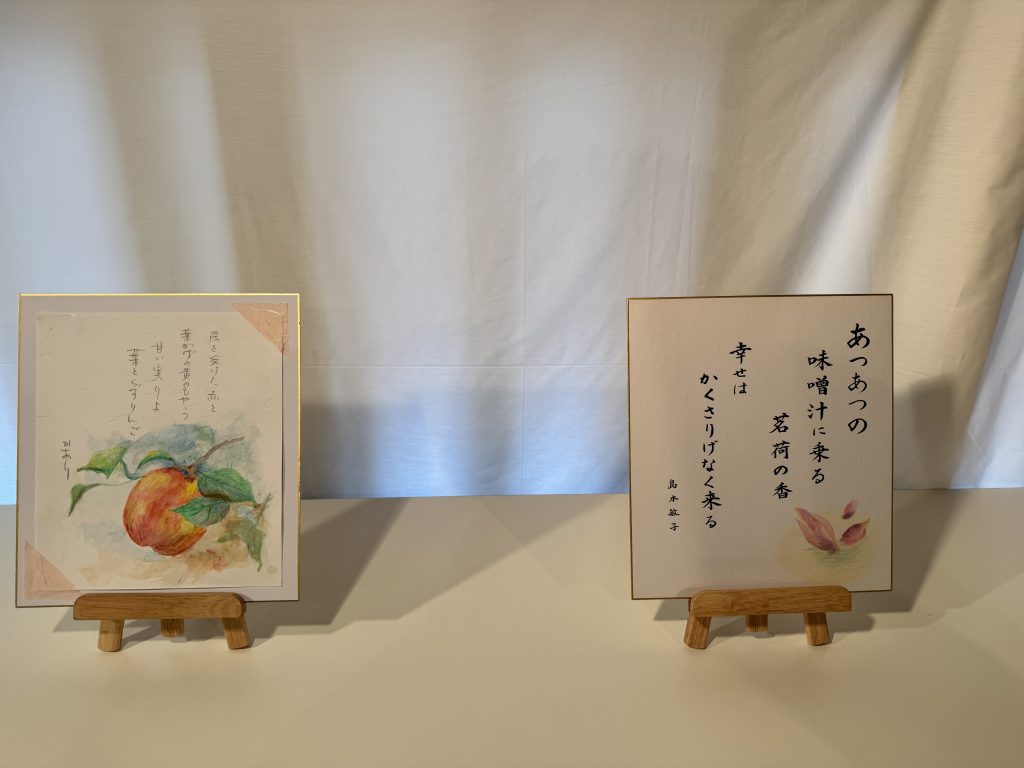 陽を受けた赤と
葉かげの黄のもやう
甘い実りよ
葉とらずりんご
あつあつの
味噌汁に乗る
茗荷の香
幸せは
かくさりげなく来る
島本敏子